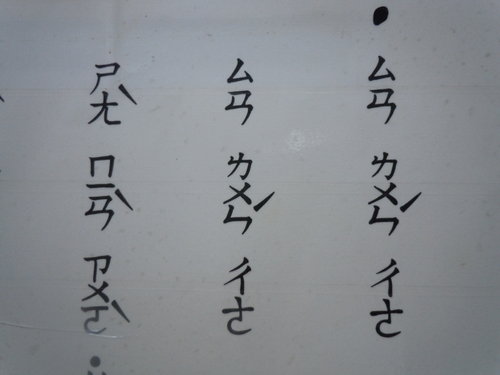 ●ㄙㄢ ㄌㄨㄣˊ ㄔㄜ
ㄙㄢ ㄌㄨㄣˊ ㄔㄜ
ㄕㄤˋ ㄇㄧㄢˋ ㄗㄨㄛˋ